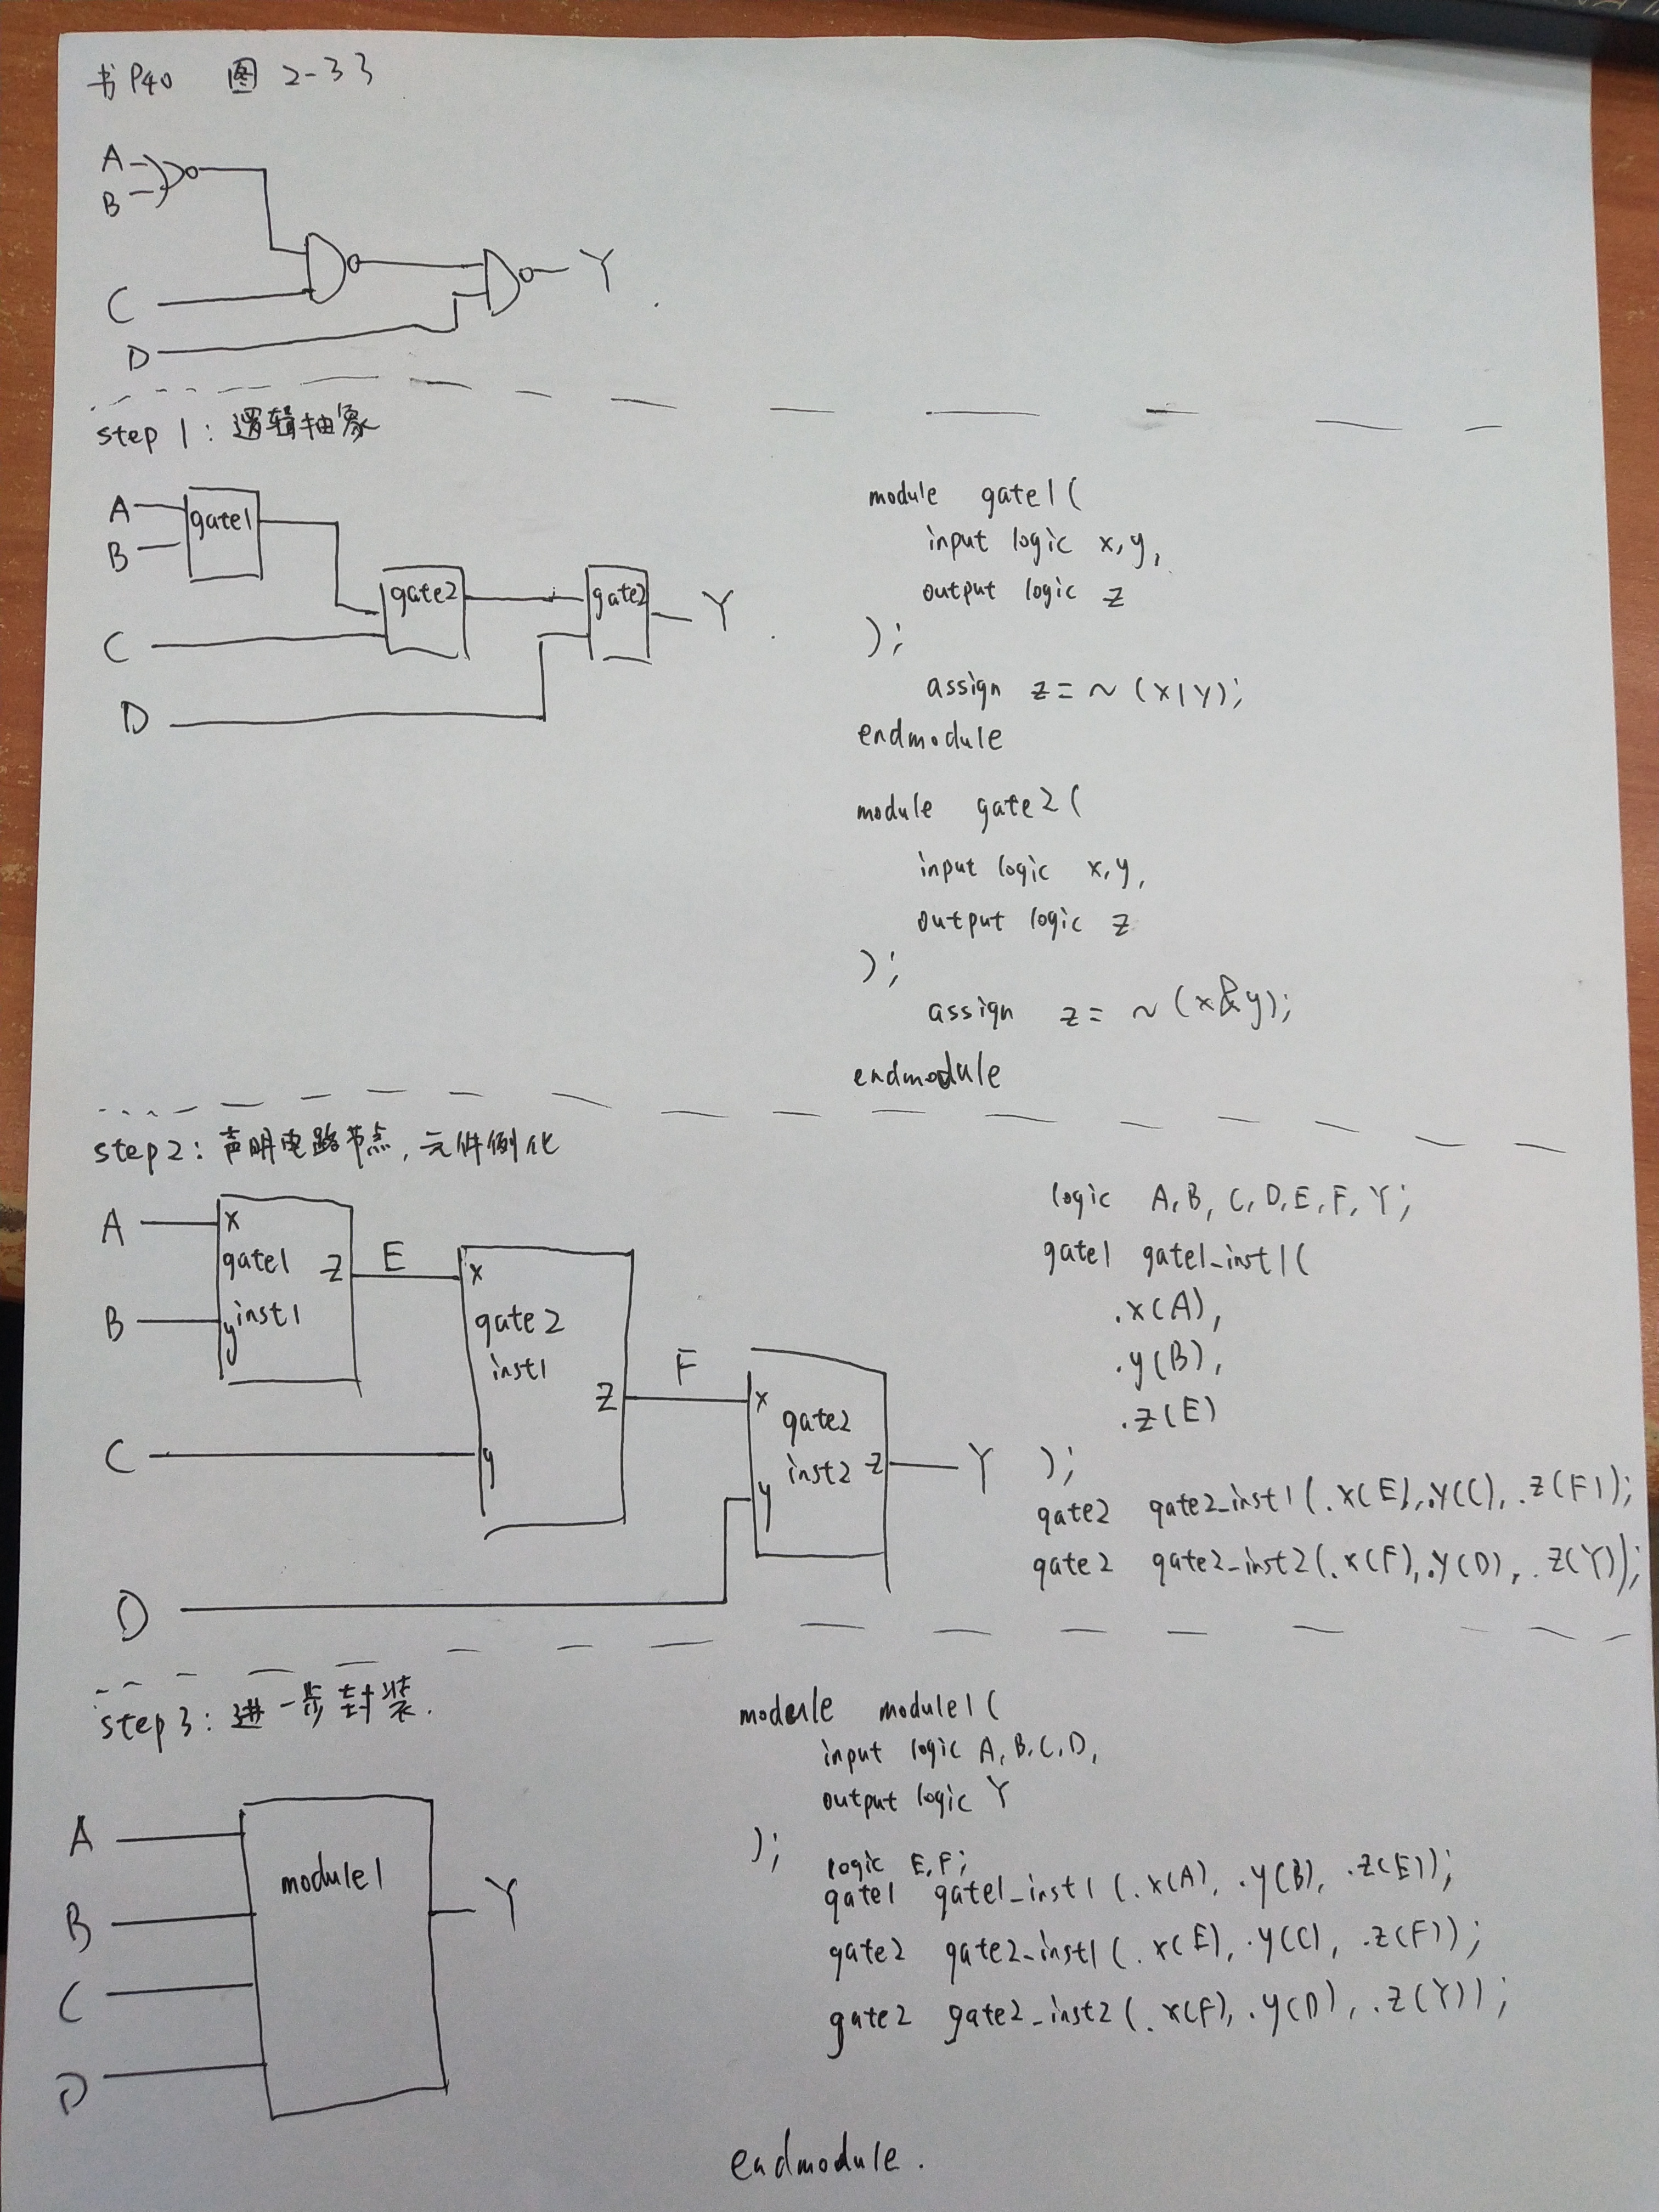 书P40 图2-33
A
B
C
D
Y
step 1: 逻辑抽象
A
B
C
D
gate1
gate2
gate2
Y
module gate1(
input logic x,y,
output logic z
);
assign z = ~(x|y);
endmodule
module gate2(
input logic x,y,
output logic z
);
assign z = ~(x&y);
endmodule
step2: 声明电路节点, 元件例化
A
B
C
D
x
gate1
z
y inst1
E
x
gate2
inst1
z
y
F
x
gate2
inst2 z
y
Y
logic A,B,C,D,E,F,Y;
gate1 gate1_inst1(
.x(A),
.y(B),
.z(E)
);
gate2 gate2_inst1(.x(E),.y(C),.z(F));
gate2 gate2_inst2(.x(F),.y(D),.z(Y));
step3: 进一步封装.
A
B
C
D
module1
Y
module module1(
input logic A,B,C,D,
output logic Y
);
logic E,F;
gate1 gate1_inst1(.x(A),.y(B),.z(E));
gate2 gate2_inst1(.x(E),.y(C),.z(F));
gate2 gate2_inst2(.x(F),.y(D),.z(Y));
endmodule.